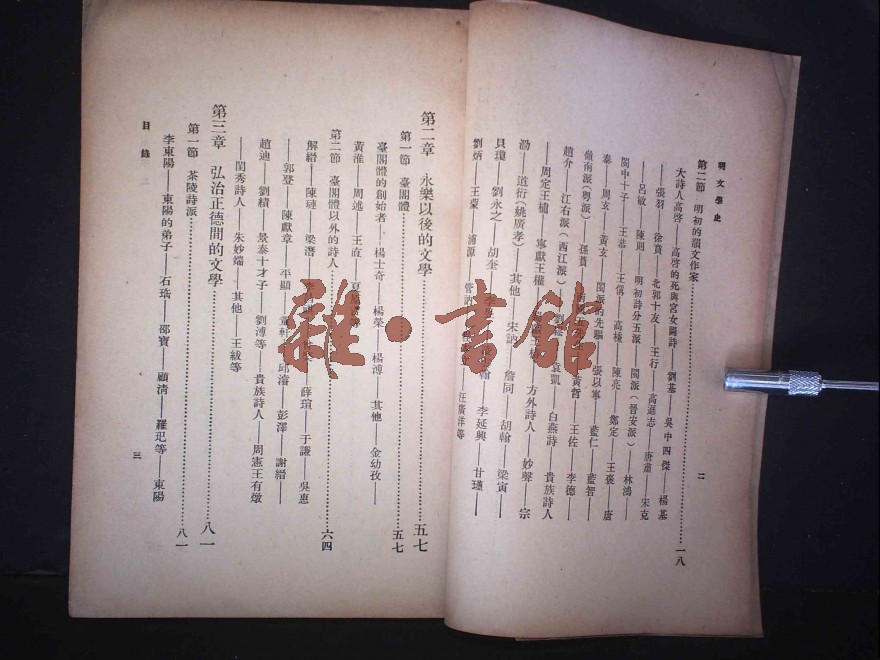 明文學史
二
第二節 明初的韻文作家………一八
大詩人高啓——高啓的死與宮女圖詩——劉基——吳中四傑——楊基
——張羽——徐賁——北郭十友——王行——高遜志——唐肅——宋克
——呂敏——陳則——明初詩分五派——閩派（晉安派）——林鴻——
閩中十子——王恭——王偁——高棅——陳亮——鄭定——王褒——唐
泰——周玄——黃玄——閩派的先驅——張以寧——藍仁——藍智——
嶺南派（粵派）——孫蕡——黃哲——王佐——李德——
趙介——江右派（西江派）——袁凱——白燕詩——貴族詩人
——周定王橚——寧獻王權——方外詩人——妙聲——宗
泐——道衍（姚廣孝）——其他——宋訥——詹同——胡翰——梁寅——
貝瓊——劉永之——胡奎——李延興——甘瑾——
劉炳——王蒙——浦源——管訥——汪廣洋等
第二章 永樂以後的文學………五七
第一節 臺閣體………五七
臺閣體的創始者——楊士奇——楊榮——楊溥——其他——金幼孜——
黃淮——周述——王直——夏原吉等
第二節 臺閣體以外的詩人………六四
解縉——陳璉——梁潛——薛瑄——于謙——吳惠
——郭登——陳獻章——平顯——童軒——邱濬——彭澤——謝縉——
趙迪——劉績——景泰十才子——劉溥等——貴族詩人——周憲王有燉
——閨秀詩人——朱妙端——其他——王紱等
第三章 弘治正德間的文學………八一
第一節 茶陵詩派………八一
李東陽——東陽的弟子——石珤——邵寶——顧清——羅玘等——東陽
目錄
三
雜·書館